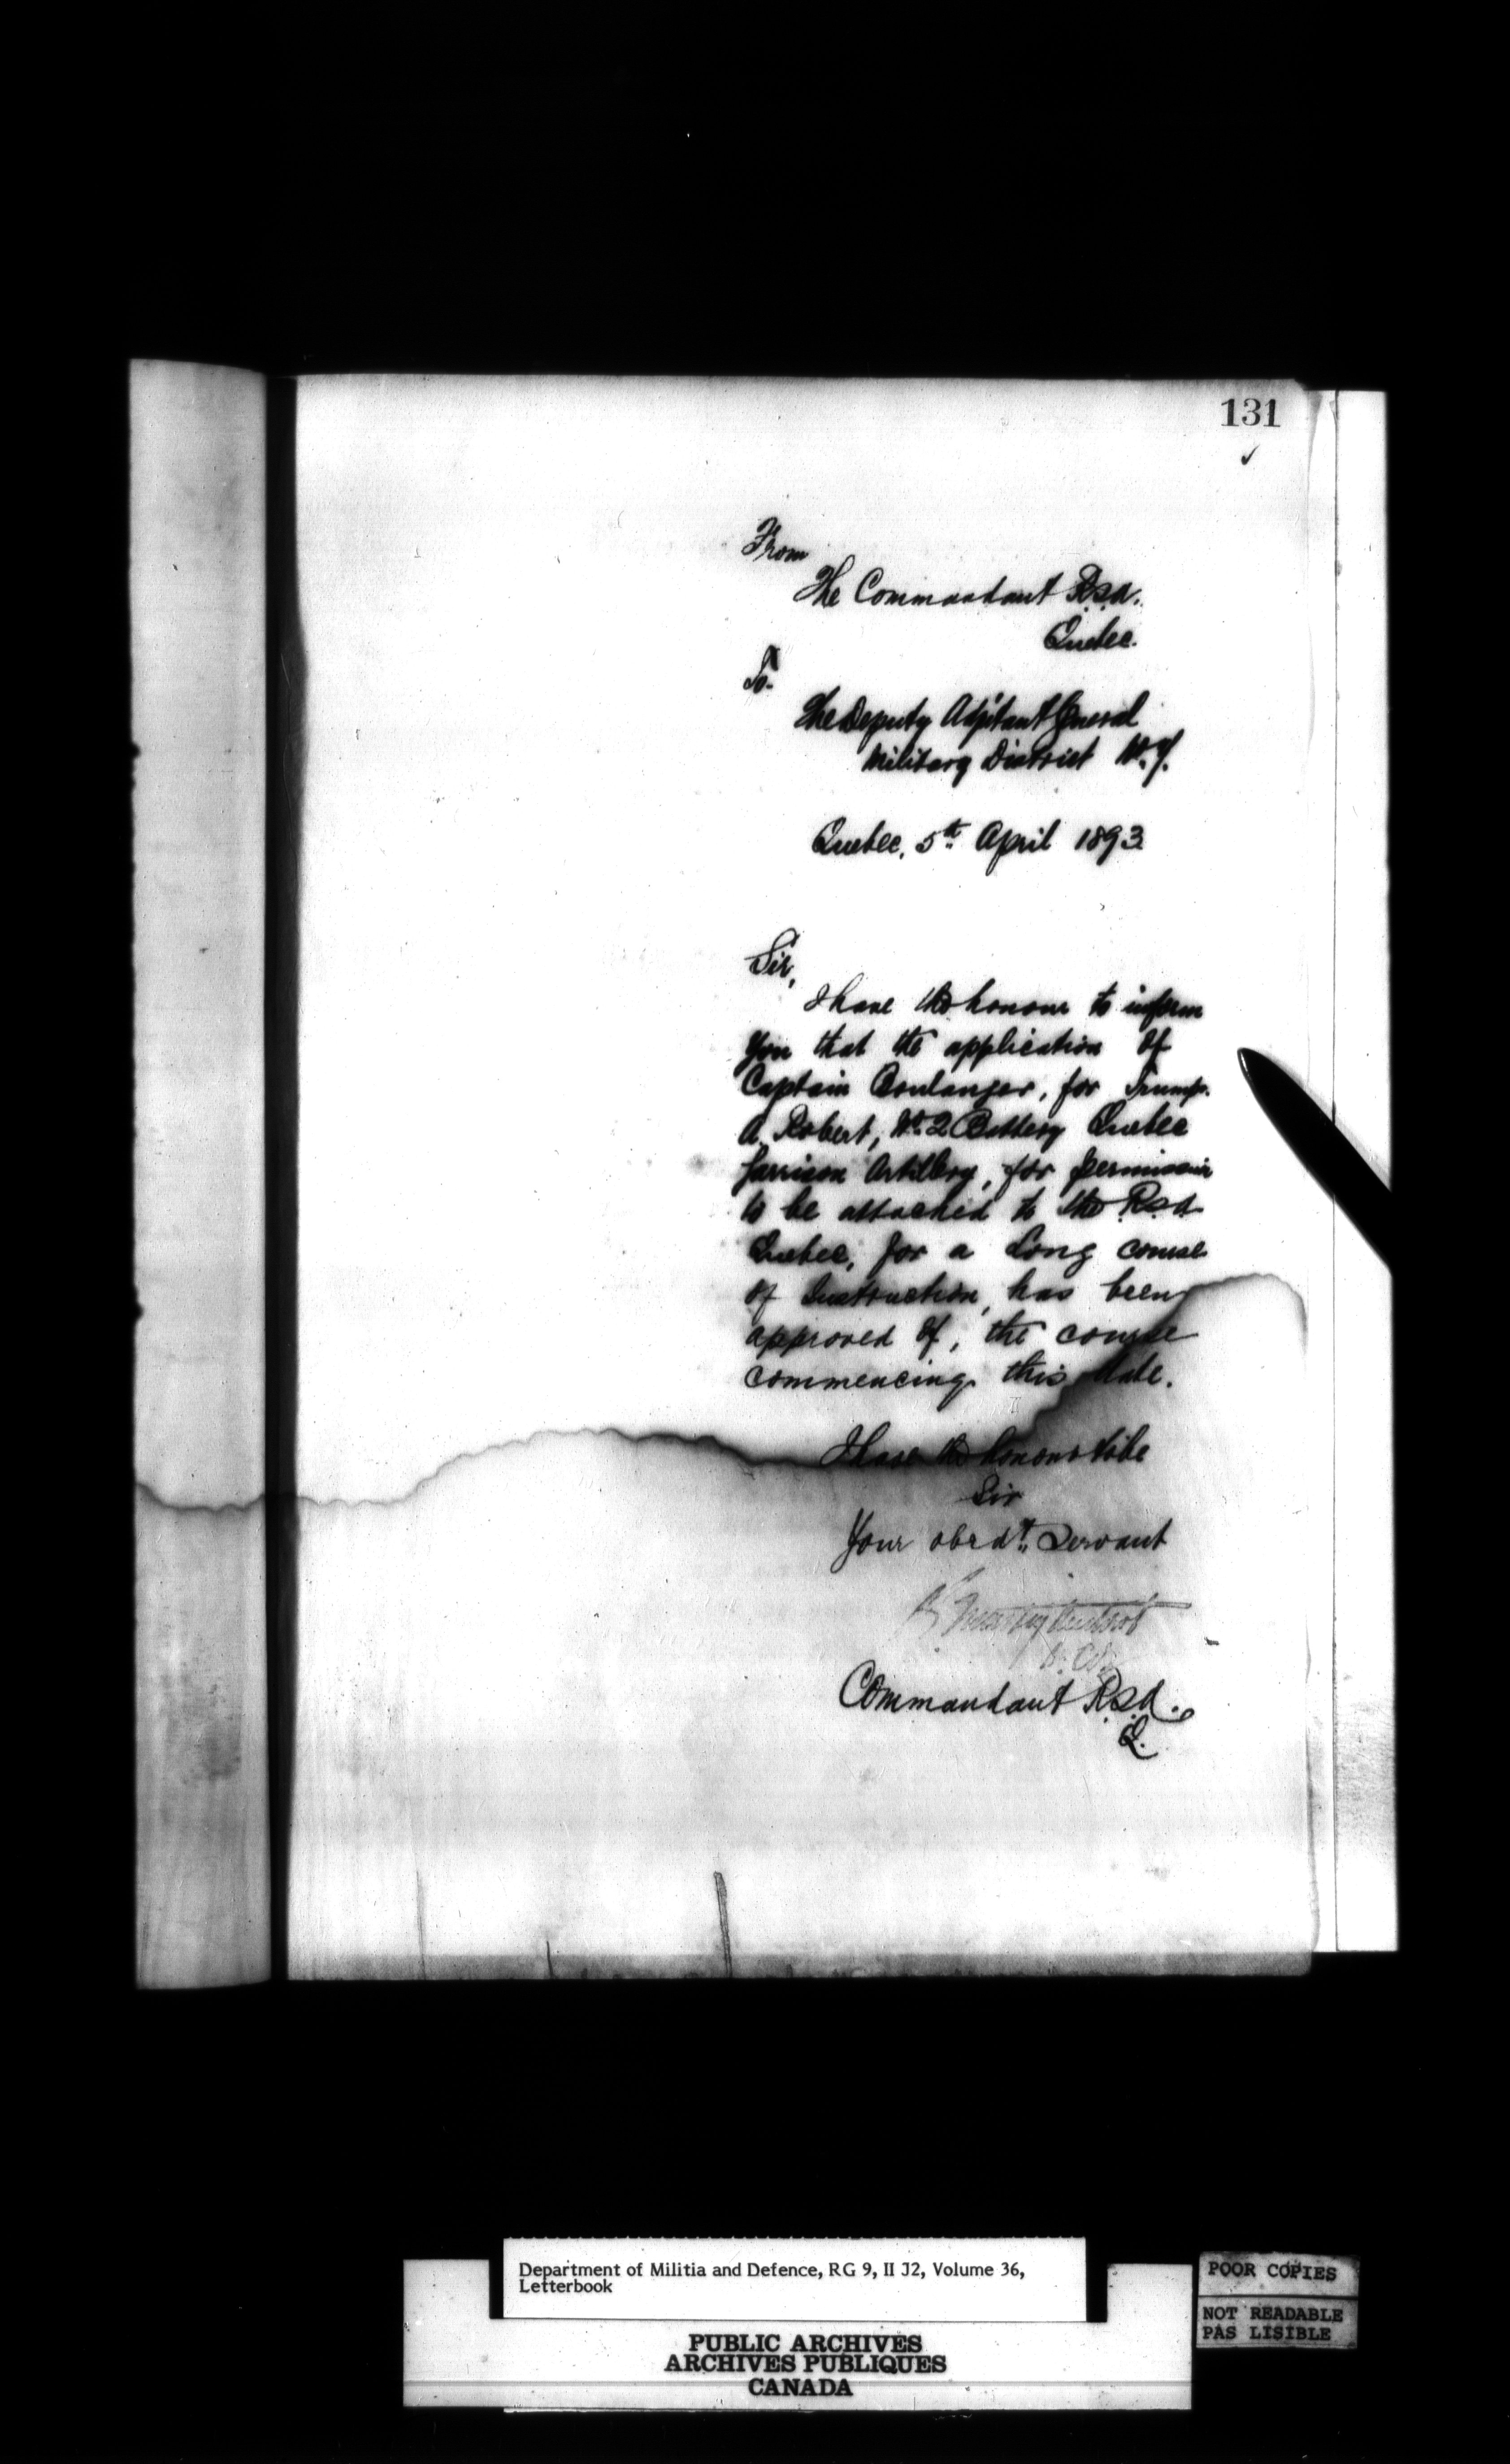 131
From
The Commandant R.S.A.
Quebec.
To.
The Deputy Adjutant General
Military District No. 7.
Quebec, 5th April 1893
Sir,
I have the honour to inform
you that the application of
Captain Boulanger, for Trump.
A. Robert, No. 2 Battery Quebec
Garrison Artillery, for permission
to be attached to the R.S.A.
Quebec, for a Long course
of Instruction, has been
approved of, the course
commencing this date.
I have the honour to be
Sir
Your obedt. Servant
Commandant R.S.A.
Q.
Department of Militia and Defence, RG 9, II J2, Volume 36,
Letterbook
PUBLIC ARCHIVES
ARCHIVES PUBLIQUES
CANADA
POOR COPIES
NOT READABLE
PAS LISIBLE